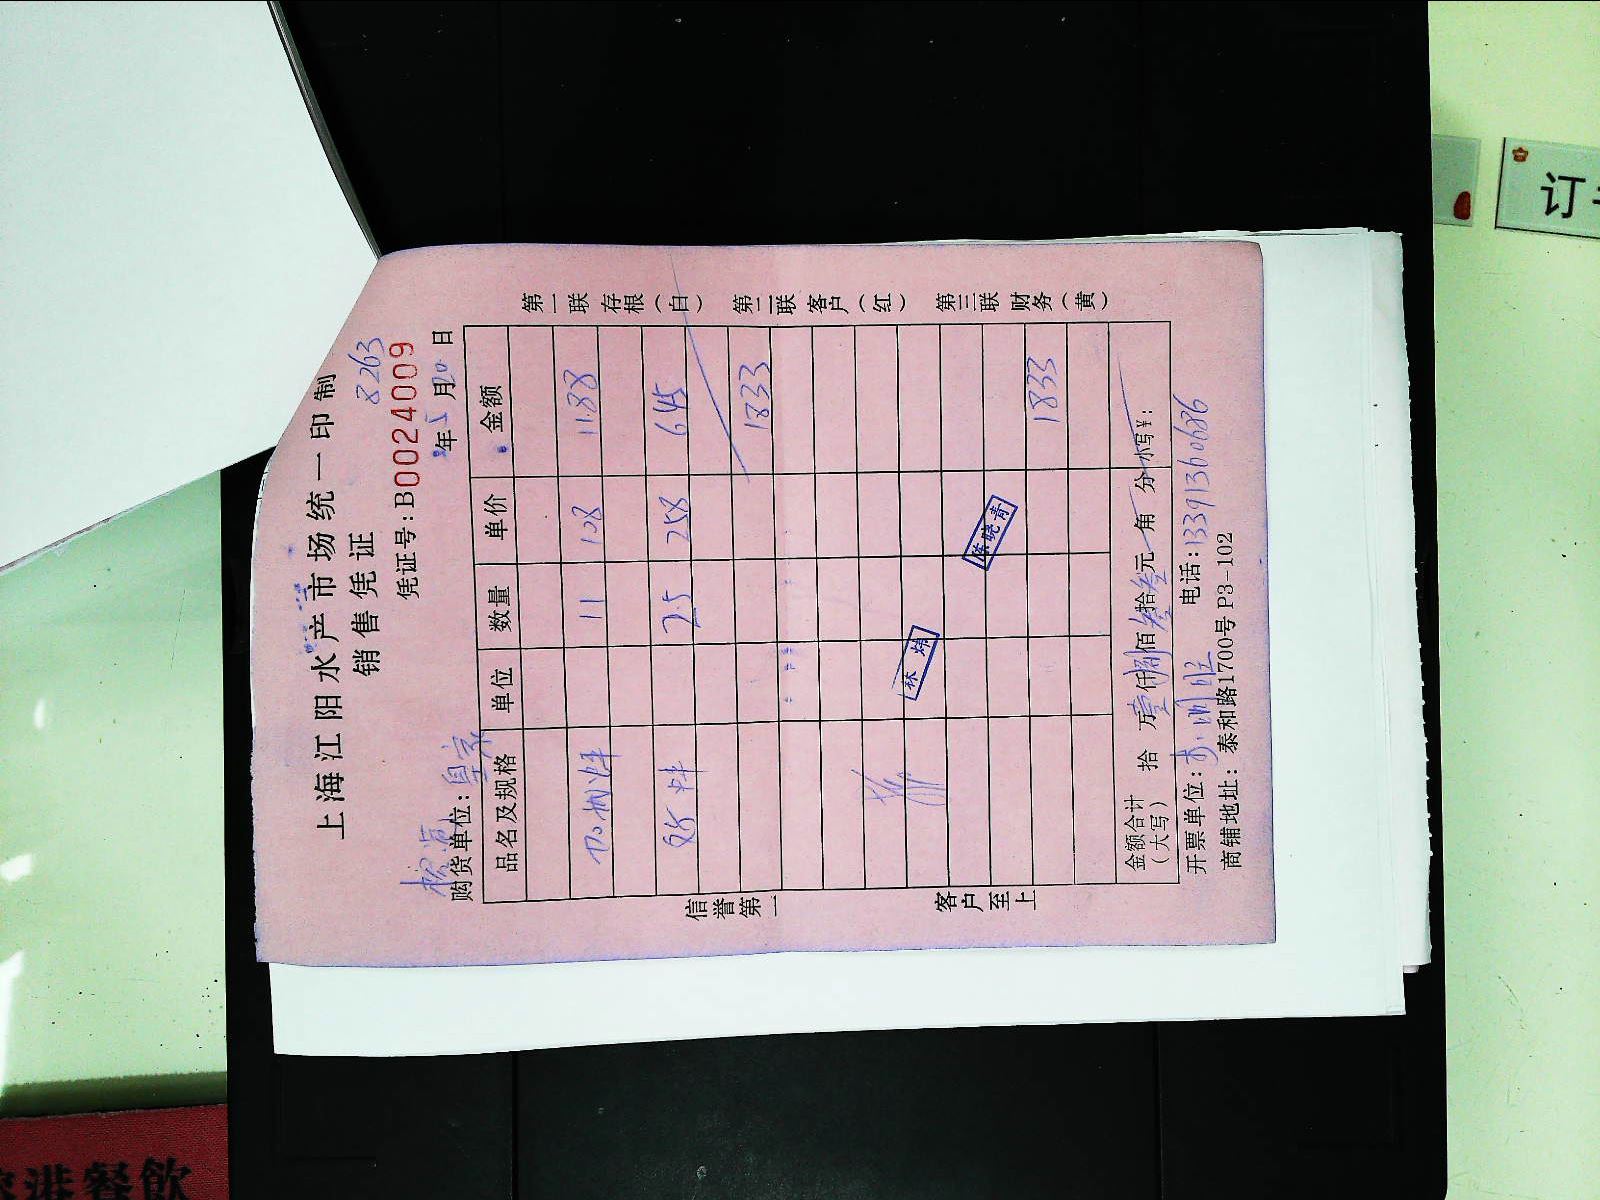 上海江阳水产市场统一印制
销售凭证
8263
凭证号:B0024009
年5月20日
购货单位:
品名及规格 单位 数量 单价 金额
11 108 1188
2.5 258 645
1833
林炜
陈晓青
1833
金额合计(大写) 拾 万壹仟捌佰叁拾叁元 角 分 小写¥:
开票单位: 电话:13391360686
商铺地址:泰和路1700号P3-102
第一联 存根(白) 第二联 客户(红) 第三联 财务(黄)
信誉第一 客户至上
订
餐飲